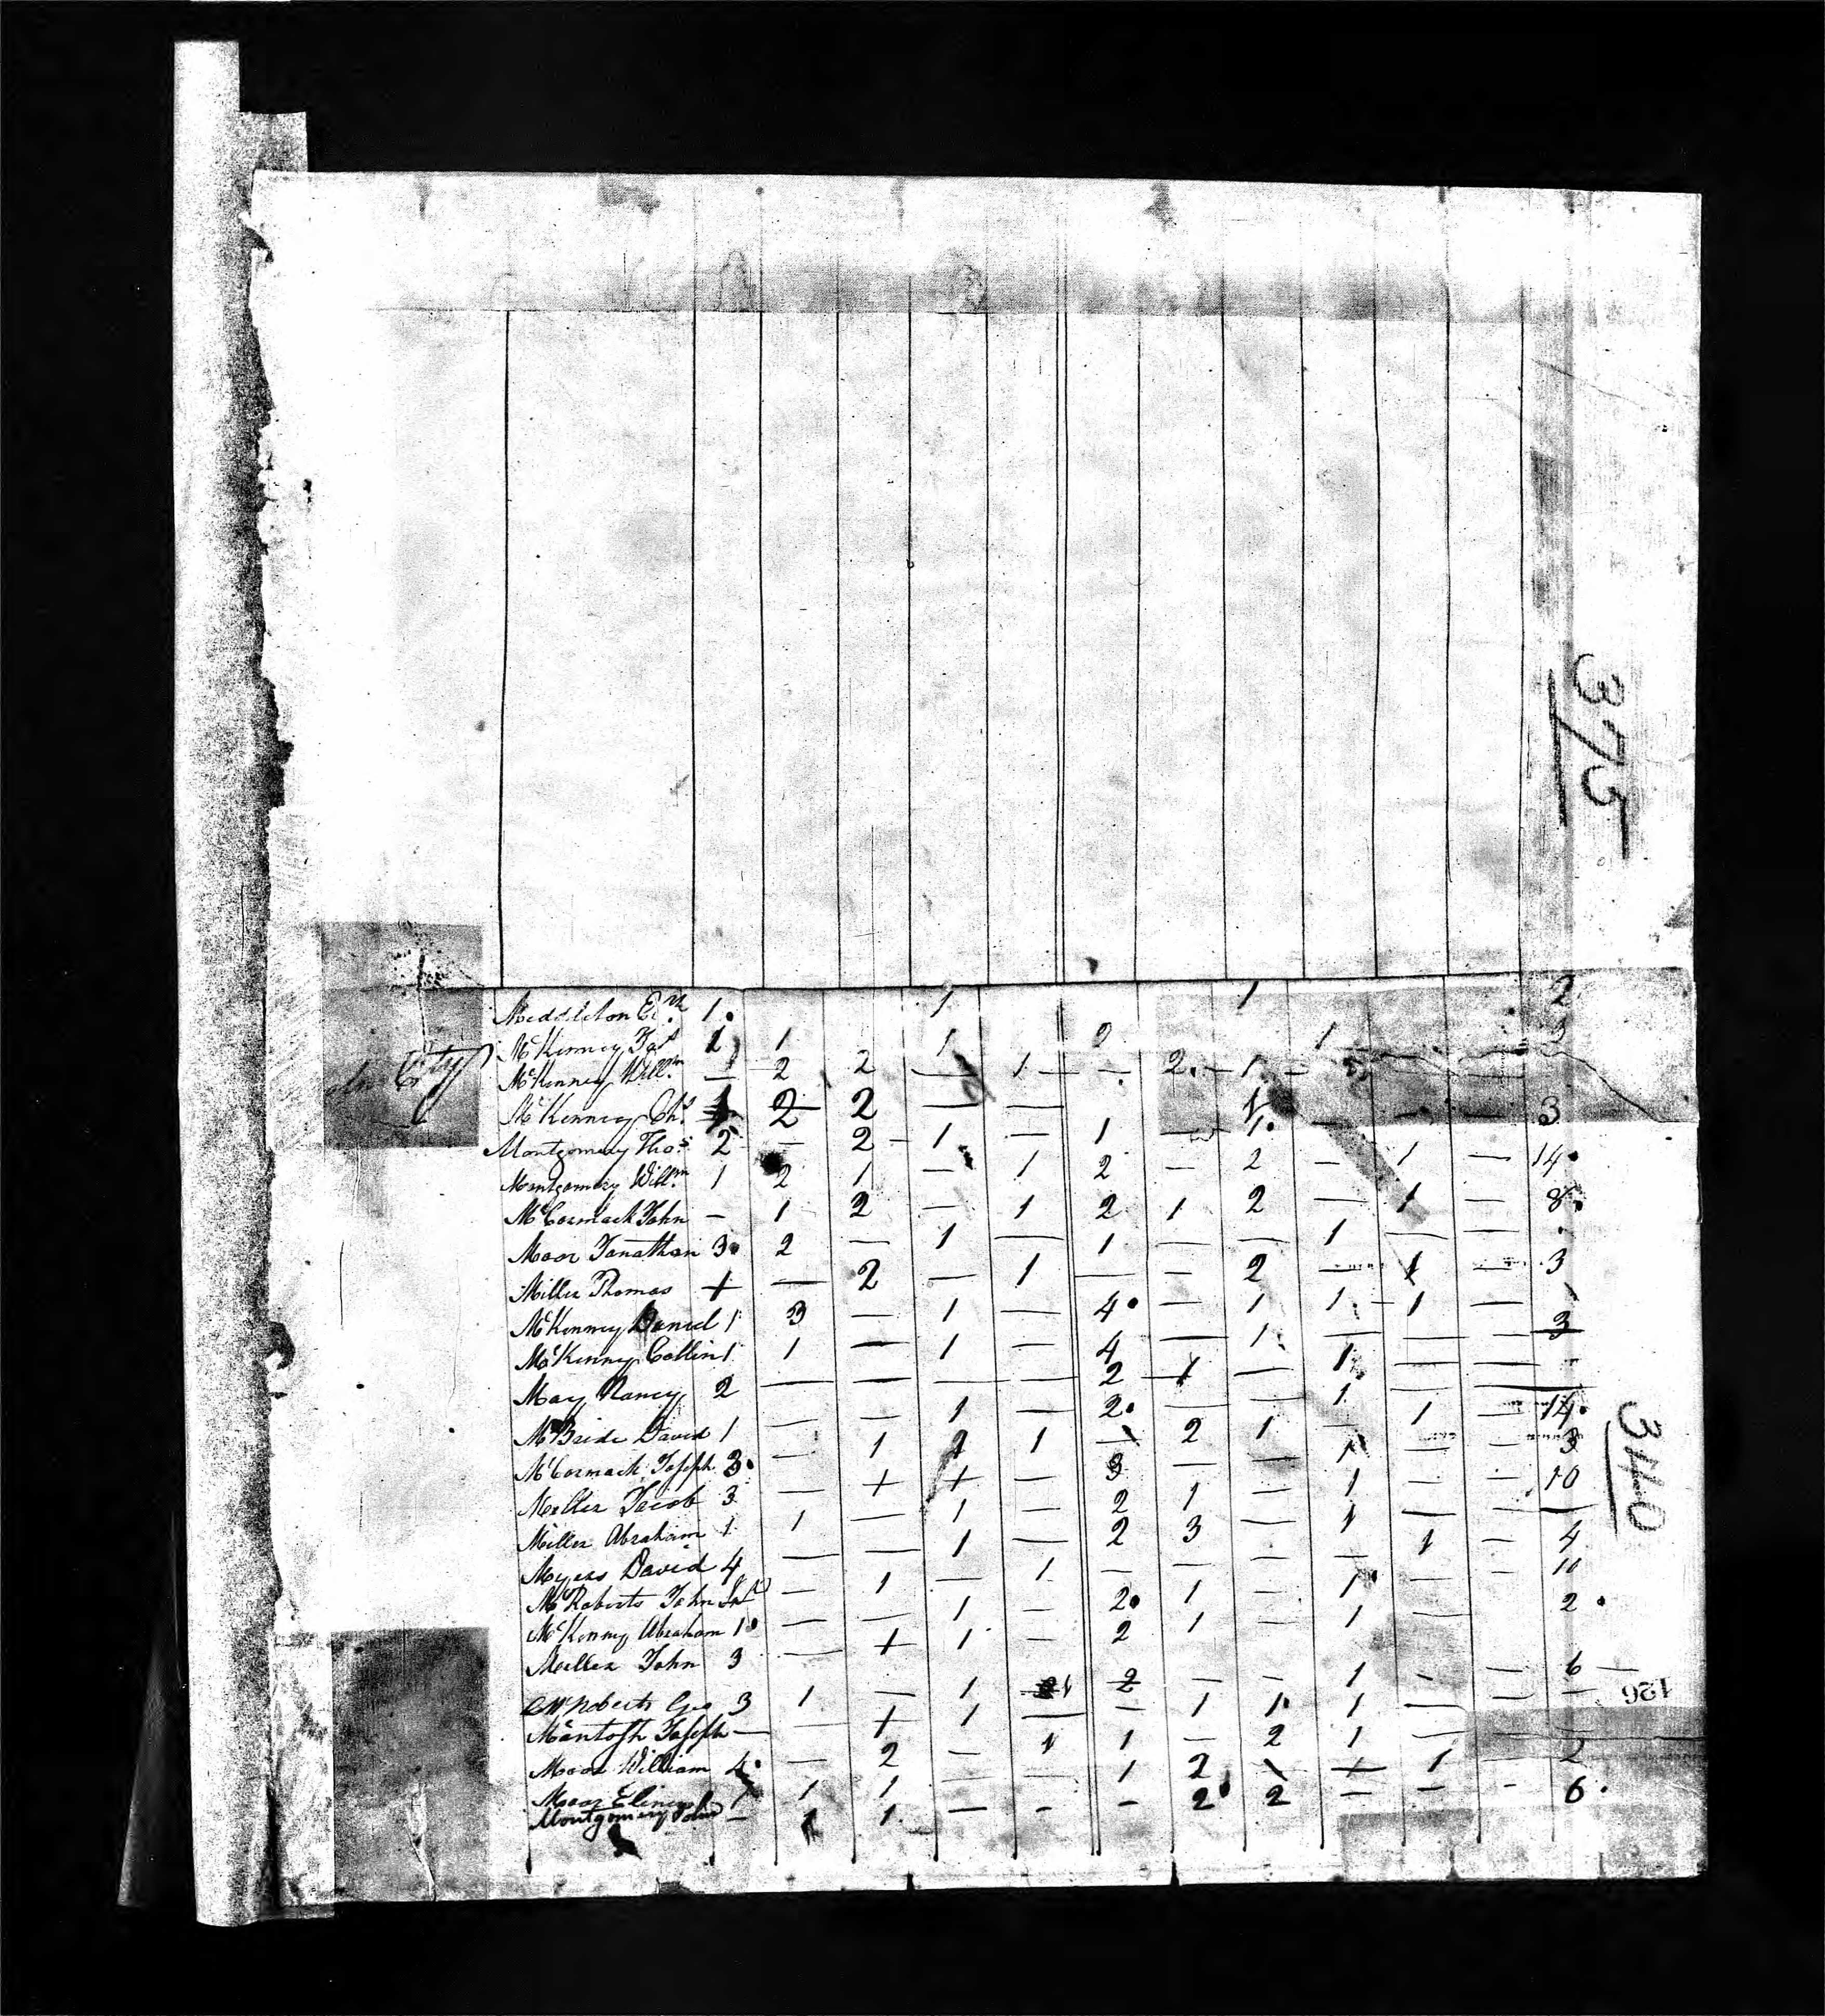 375
Middleton 1. 1 1 2
McKinney Jas 2 1 1 2 1 3
McKinney Willm — 2 2 — 1 — — 2. — 1 —
McKinney Chs 1 2 2 — — 1 — — 3
Montgomery Thos 2 — 2 — 1 — 1 — 1. — 1 — 14.
Montgomery Willm 1 2 1 — 1 2 — 2 — 1 — 8.
McCormack John — 1 2 — 1 2 1 2 — 1 —
Moor Jonathan 3. 2 — 1 — 1 — — 1 — —
Miller Thomas + — 2 — 1 — — 2 — 1 — 3
McKinney Daniel 1 3 — 1 — 4. — 1 1 — 1 —
McKinney Collin 1 1 — 1 — 4 — 1 — — — 3
May Nancy 2 — — — — 2 1 — 1 — —
McBride David 1 — — 1 — 2. — — 1 — — 14.
McCormack Joseph 3. — 1 1 1 — 2 1 — 1 — 3
Miller Jacob 3 — + + — 3 — — 1 — — 10
Miller Abraham 1 1 — 1 — 2 1 — 1 — — —
Myers David 4 — — 1 — 2 3 — 1 — — 4
McRoberts John — 1 — 1 — — — — 1 — 10
McKinny Abraham 1. — — 1 — 2. 1 — 1 — 2.
Miller John 3 — + 1 — 2 1 — 1
McRoberts Geo 3 1 — 1 1 2 — — 1 — — 6
McIntosh Joseph — — + 1 — — 1 1. 1 — —
Moor William 4. — 2 — 1 1 — 2 1 — — 2
Moor 1 1 — — 1 2 \ + 1 —
Montgomery John — 1 1. — — — 2 2 — — — 6.
340
126